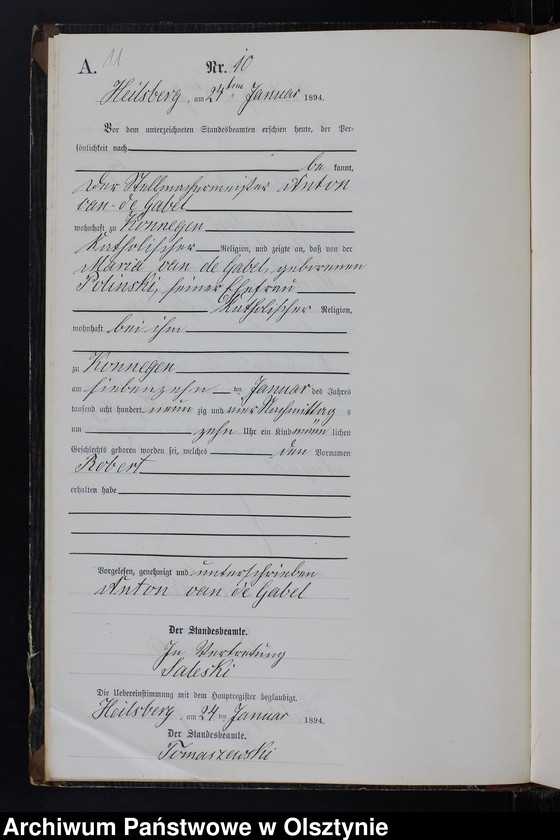 A. 11 Nr. 10
Heilsberg, am 24ten Januar 1894.
Vor dem unterzeichneten Standesbeamten erschien heute, der Per-
sönlichkeit nach
be kannt,
der Stellmachermeister Anton
van de Gabel
wohnhaft zu Konnegen
katholischer Religion, und zeigte an, daß von der
Maria van de Gabel, geborenen
Polinski, seiner Ehefrau
katholischer Religion,
wohnhaft bei ihm
zu Konnegen
am siebenzehn ten Januar des Jahres
tausend acht hundert neun zig und vier Nachmittag s
um zehn Uhr ein Kind männ lichen
Geschlechts geboren worden sei, welches den Vornamen
Robert
erhalten habe
Vorgelesen, genehmigt und unterschrieben
Anton van de Gabel
Der Standesbeamte.
In Vertretung
Saleski
Die Uebereinstimmung mit dem Hauptregister beglaubigt.
Heilsberg, am 24 ten Januar 1894.
Der Standesbeamte.
Tomaszewski
Archiwum Państwowe w Olsztynie